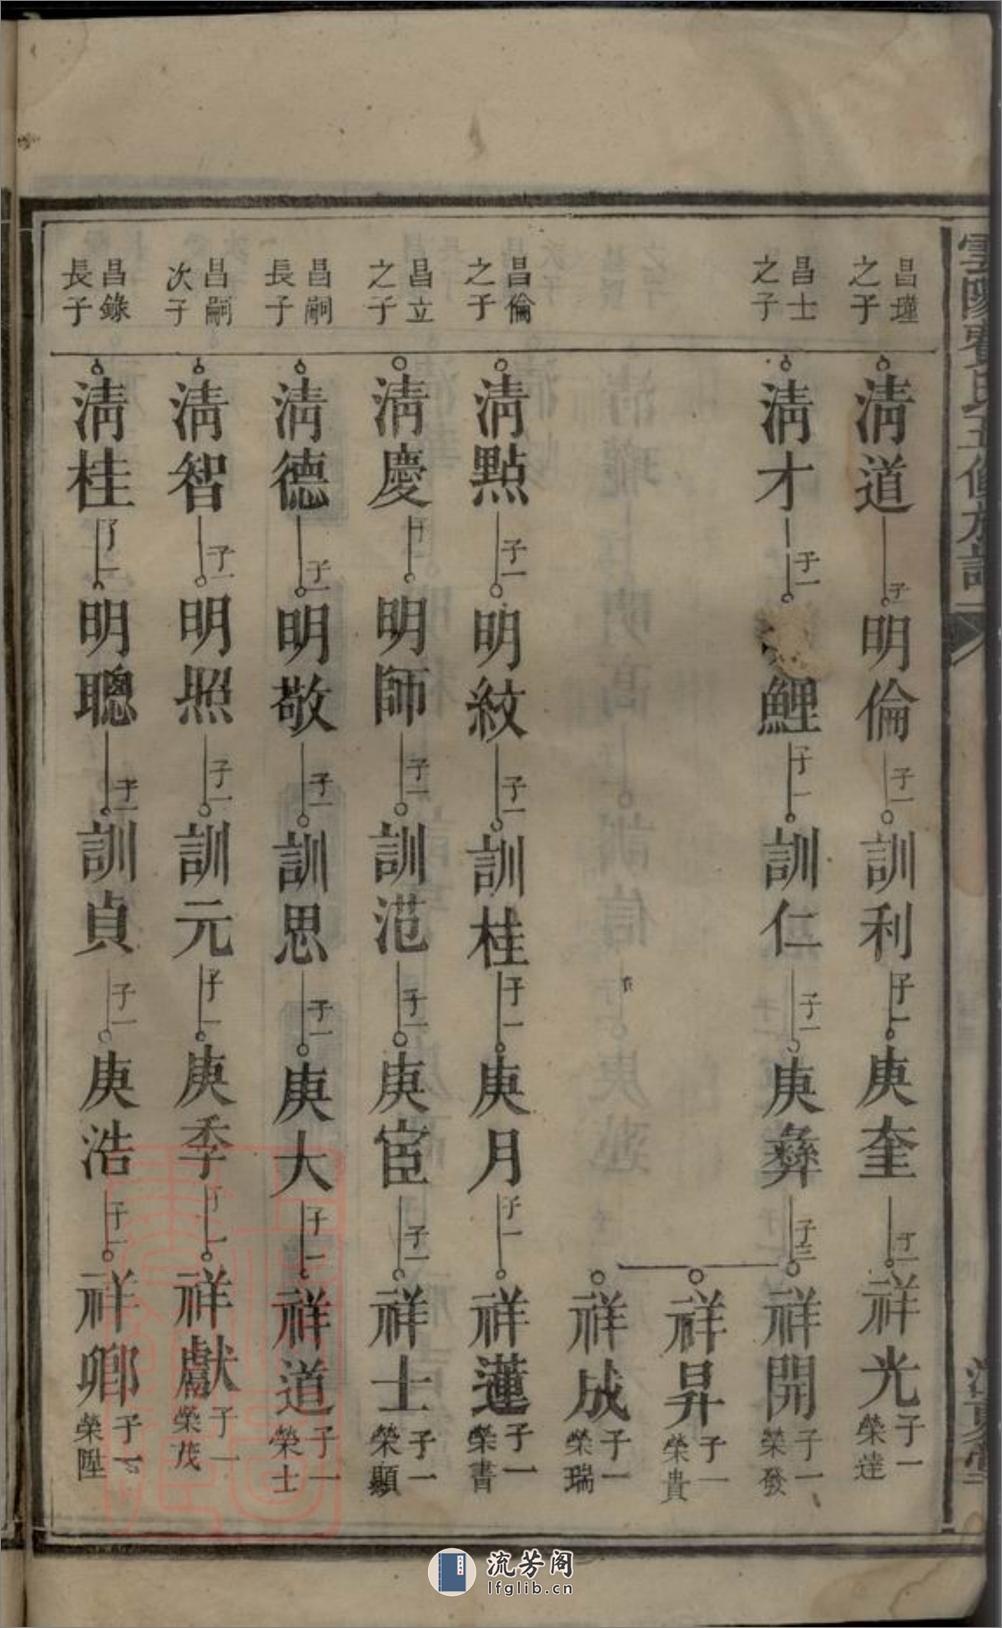 昌瑾之子
清道
子一
明倫
子一
訓利
子一
庚奎
子一
祥光
子一
榮達
昌士之子
清才
子一
鯉
子一
訓仁
子一
庚彝
子三
祥開
子一
榮發
祥昇
子一
榮貴
祥成
子一
榮瑞
昌倫之子
清點
子一
明紋
子一
訓桂
子一
庚月
子一
祥蓮
子一
榮書
昌立之子
清慶
子一
明師
子一
訓范
子一
庚宦
子一
祥士
子一
榮顯
昌嗣長子
清德
子一
明敬
子一
訓思
子一
庚大
子一
祥道
子一
榮士
昌嗣次子
清智
子一
明照
子一
訓元
子一
庚季
子一
祥獻
子一
榮茂
昌錄長子
清桂
子一
明聰
子一
訓貞
子一
庚浩
子一
祥卿
子一
榮陞
流芳阁
lfglib.cn